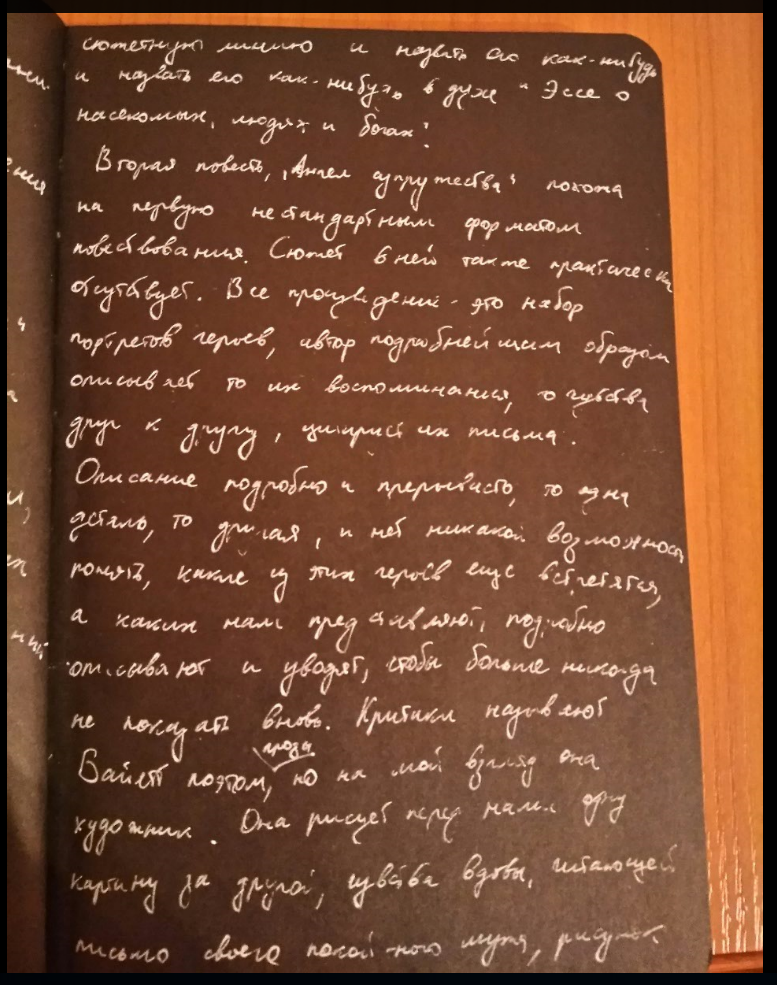 сюжетную линию и назвать его как-нибудь
и назвать его как-нибудь в духе "Эссе о
насекомых, людях и богах".
Вторая повесть, "Ангел супружества" похожа
на первую нестандартным форматом
повествования. Сюжет в ней также практически
отсутствует. Все произведение - это набор
портретов героев, автор подробнейшим образом
описывает то их воспоминания, то чувства
друг к другу, цитирует их письма.
Описание подробно и прерывисто, то одна
деталь, то другая, и нет никакой возможности
понять, какие из этих героев еще встретятся,
а каких нам представляют, подробно
описывают и уводят, чтобы больше никогда
не показать вновь. Критики называют
прозы
Байетт поэтом, но на мой взгляд она
художник. Она рисует перед нами одну
картину за другой, чувства вдовы, читающей
письмо своего покойного мужа, рисунок
ения
ный